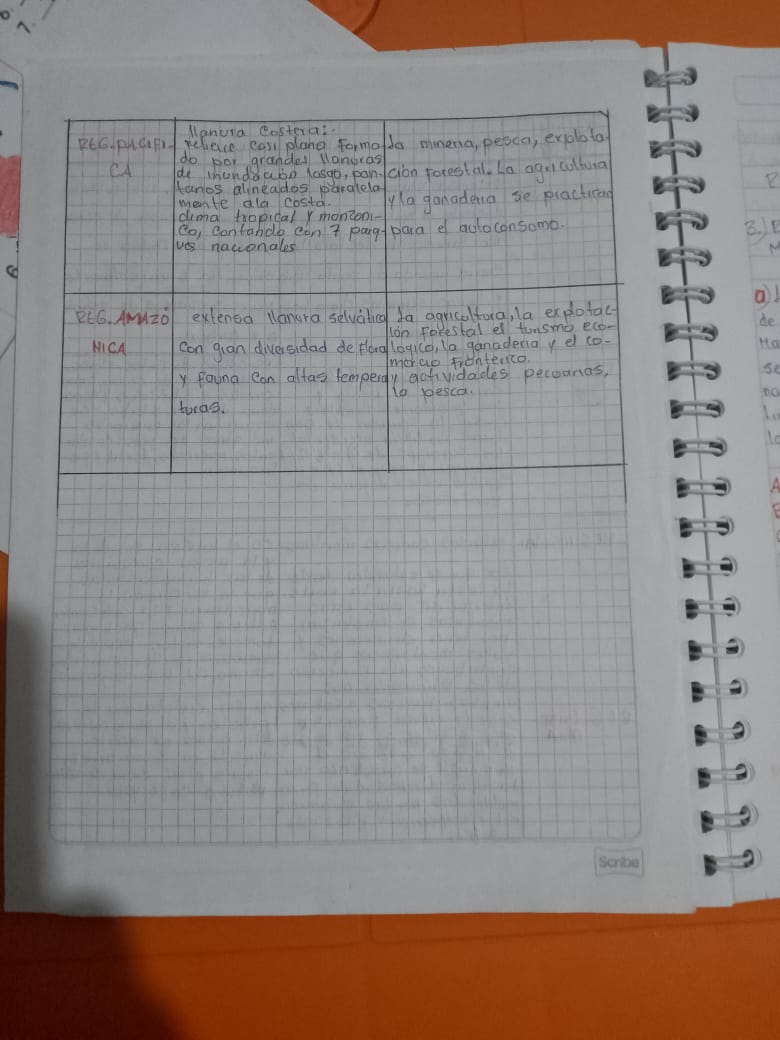 REG. PACIFI-
CA
llanura costera:
relieve casi plano forma
do por grandes llanuras
de inundación, pan-
tanos alineados paralela
mente ala costa.
clima tropical y monzoni-
co, contando con 7 parq-
ues nacionales
la mineria, pesca, explota
ción forestal. La agricultura
y la ganaderia se practican
para el autoconsomo.
REG. AMAZÓ
NICA
extensa llanura selvática
con gran diversidad de flora
y fauna con altas tempera
turas.
la agricoltura, la explotac-
ión forestal el turismo eco-
logico, la ganaderia y el co-
mercio fronterico.
y actividades pecoarias,
la pesca.
Scribe
3.)
a)
de
Ha
se
no